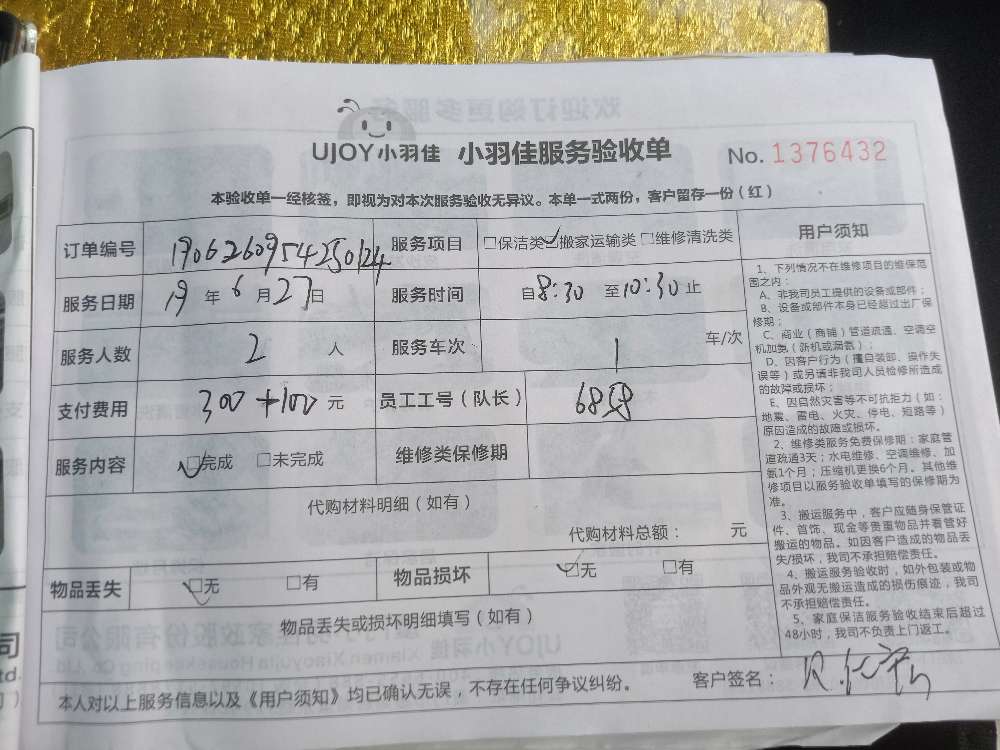 UJOY小羽佳 小羽佳服务验收单 No. 1376432
本验收单一经核签，即视为对本次服务验收无异议。本单一式两份，客户留存一份（红）
订单编号 1906260954250124 服务项目 □保洁类 ☑搬家运输类 □维修清洗类
服务日期 19 年 6 月 27 日 服务时间 自8:30 至10:30止
服务人数 2 人 服务车次 1 车/次
支付费用 300+100 元 员工工号（队长） 68
服务内容 ☑完成 □未完成 维修类保修期
代购材料明细（如有）
代购材料总额： 元
物品丢失 ☑无 □有 物品损坏 ☑无 □有
物品丢失或损坏明细填写（如有）
本人对以上服务信息以及《用户须知》均已确认无误，不存在任何争议纠纷。 客户签名：
用户须知
1、下列情况不在维修项目的维保范
围之内：
A、非我司员工提供的设备或部件；
B、设备或部件本身已经超过出厂保
修期；
C、商业（商铺）管道疏通、空调空
机加氨（新机或漏氨）；
D、因客户行为（擅自装卸、操作失
误等）或另请非我司人员检修所造成
的故障或损坏；
E、因自然灾害等不可抗拒力（如：
地震、雷电、火灾、停电、短路等）
原因造成的故障或损坏。
2、维修类服务免费保修期：家庭管
道疏通3天；水电维修、空调维修、加
氨1个月；压缩机更换6个月。其他维
修项目以服务验收单填写的保修期为
准。
3、搬运服务中，客户应随身保管证
件、首饰、现金等贵重物品并看管好
搬运的物品。如因客户造成的物品丢
失/损坏，我司不承担赔偿责任。
4、搬运服务验收时，如外包装或物
品外观无搬运造成的损伤痕迹，我司
不承担赔偿责任。
5、家庭保洁服务验收结束后超过
48小时，我司不负责上门返工。
司
td.